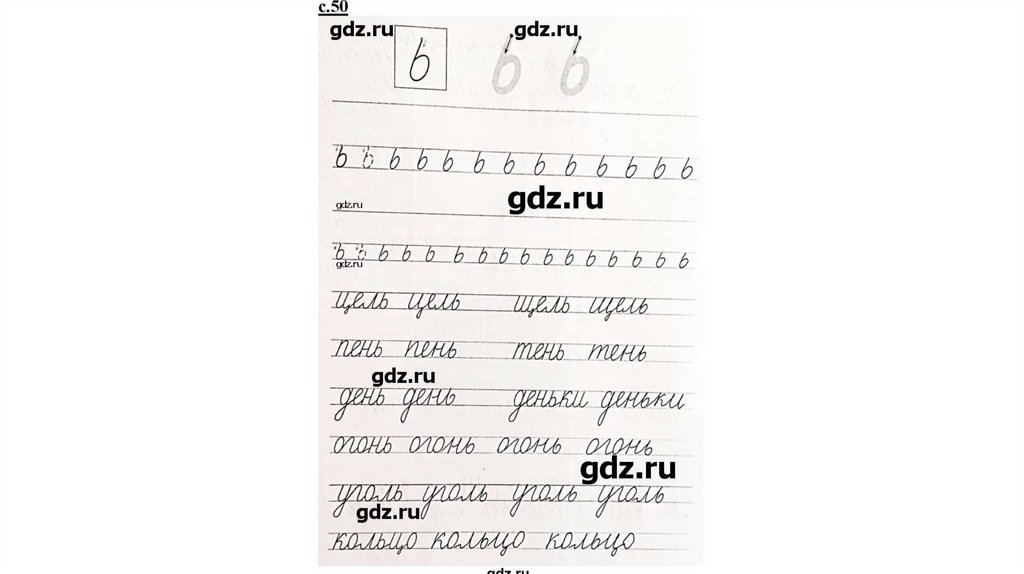 с.50
gdz.ru ь ь gdz.ru ь
ь ь ь ь ь ь ь ь ь ь ь ь ь
gdz.ru
gdz.ru
ь ь ь ь ь ь ь ь ь ь ь ь ь ь ь ь
gdz.ru
цель цель щель щель
пень пень тень тень
gdz.ru
день день деньки деньки
огонь огонь огонь огонь
gdz.ru
уголь уголь уголь уголь
gdz.ru
кольцо кольцо кольцо
gdz.ru